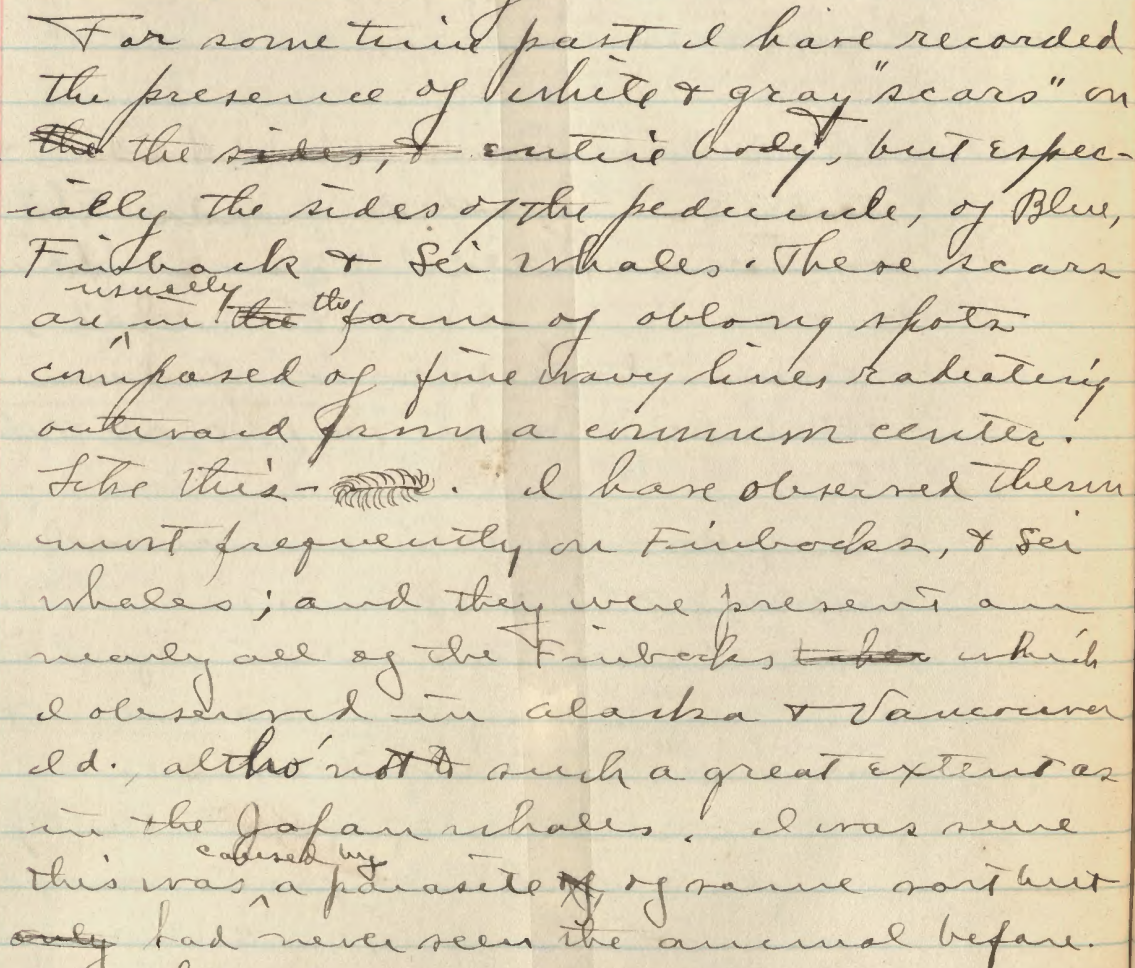 For some time past I have recorded
the presence of white & gray "scars" on
the the sides, & entire body, but espec-
ially the sides of the peduncle, of Blue,
Finback & Sei whales. These scars
usually the
are in the form of oblong spots
composed of fine wavy lines radiating
outward from a common center.
Like this - . I have observed them
most frequently on Finbacks, & Sei
whales; and they were present on
nearly all of the Finbacks taken which
I observed in Alaska & Vancouver
Id., altho' not to such a great extent as
in the Japan whales. I was sure
caused by
this was a parasite of of some sort but
only had never seen the animal before.